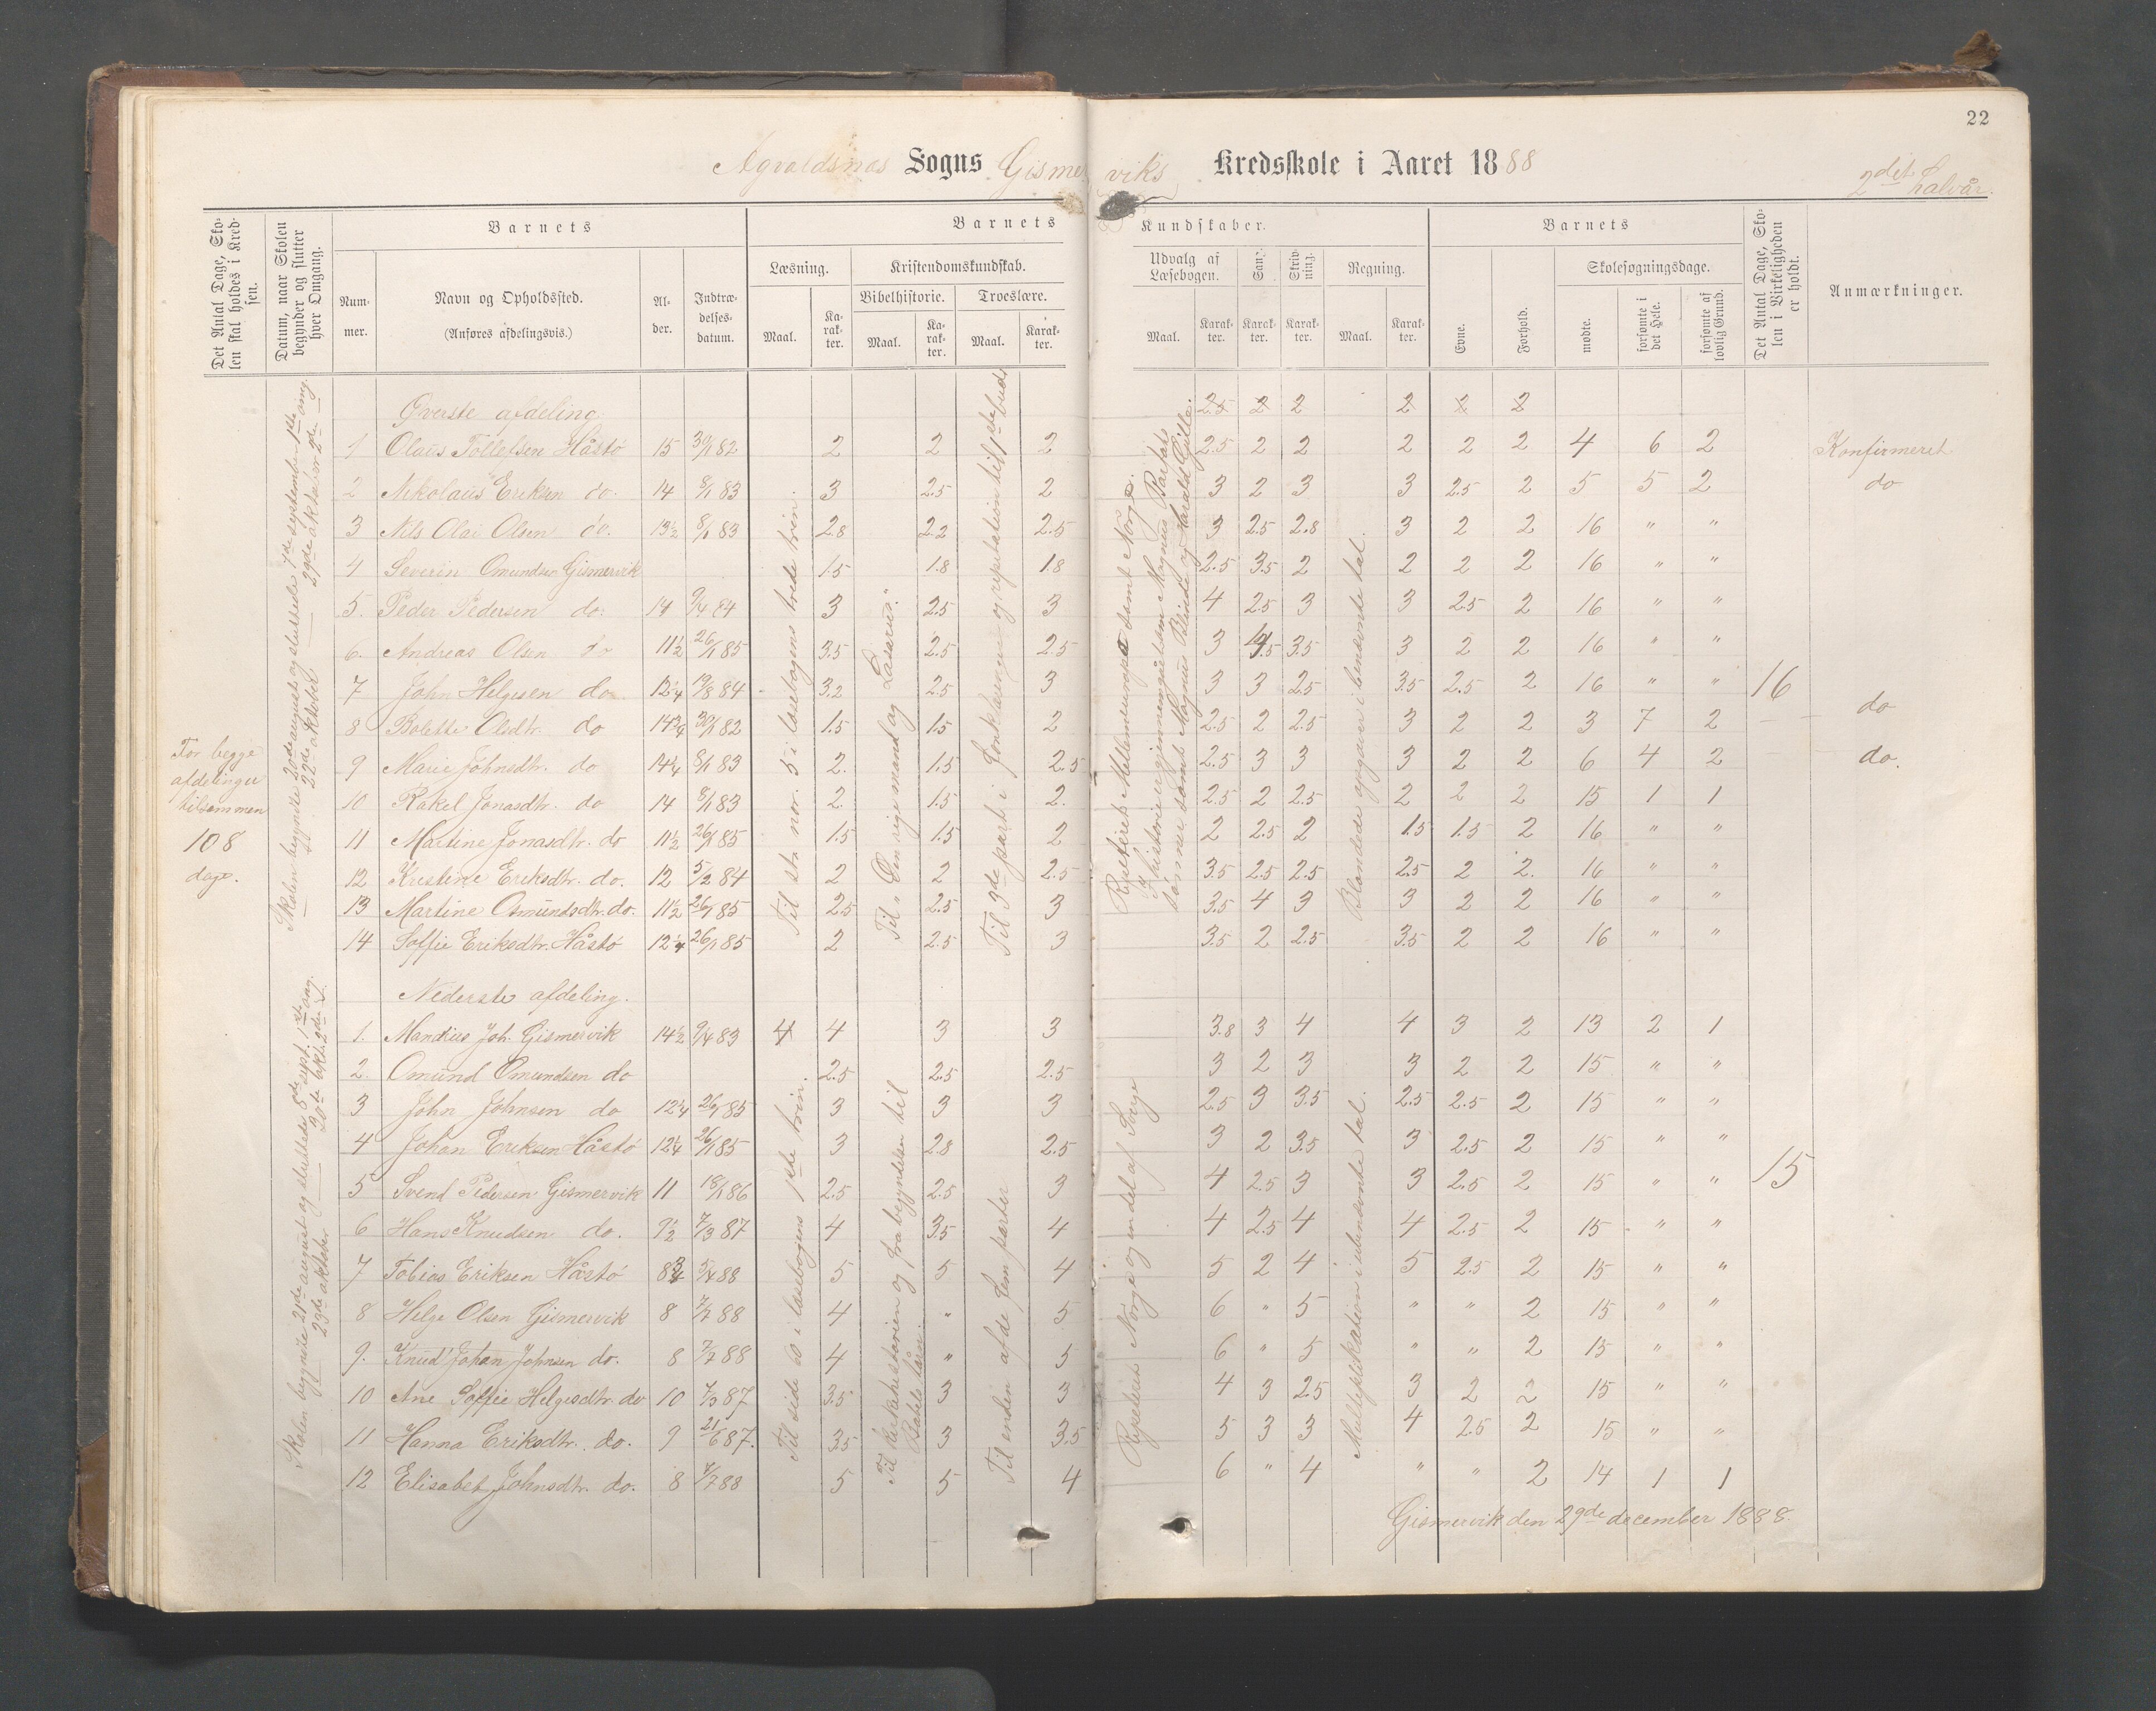 22
Agvaldsnæs Sogns Gismerviks Kredsskole i Aaret 1888 2det halvår.
Det Antal Dage, Skolen skal holdes i Kredsen.
Datum, naar Skolen begynder og slutter hver Omgang.
Barnets
Barnets Kundskaber.
Barnets
Det Antal Dage, Skolen i Virkeligheden er holdt.
Anmærkninger.
Nummer.
Navn og Opholdssted.
(Anføres afdelingsvis.)
Alder.
Indtrædelsesdatum.
Læsning.
Kristendomskundskab.
Bibelhistorie.
Troeslære.
Udvalg af Læsebogen.
Sang.
Skrivning.
Regning.
Evne.
Forhold.
Skolesøgningsdage.
mødte.
forsømte i det Hele.
forsømte af lovlig Grund.
Maal. Karakter. Maal. Karakter. Maal. Karakter. Maal. Karakter. Karakter. Karakter. Maal. Karakter.
For begge
afdelinger
tilsammen
108
dage.
Skolen begynte 20de august og sluttede 7de september 1ste omg.
22de oktober 29de oktober 2den
Øverste afdeling 2.5 2 2 2 2 2
1 Olaus Tollefsen Håstø 15 30/1 82 2 2 2 2.5 2 2 2 2 2 4 6 2 Konfirmeret
2 Nikolaus Eriksen do. 14 8/1 83 3 2.5 2 3 2 3 3 2.5 2 5 5 2 do
3 Nils Olai Olsen do. 13½ 8/1 83 2.8 2.2 2.5 3 2.5 2.8 3 2 2 16 " "
4 Severin Omundsen Gismervik 1.5 1.8 1.8 2.5 3.5 2 2 2 2 16 " "
5. Peder Pedersen do. 14 9/4 84 3 2.5 3 4 2.5 3 3 2.5 2 16 " "
6. Andreas Olsen do 11½ 26/1 85 3.5 2.5 2.5 3 4.5 3.5 3 2 2 16 " "
7 John Helgesen do 12¼ 19/8 84 3.2 2.5 3 3 3 2.5 3.5 2.5 2 16 " " 16
8 Bolette Olsdtr. do 14¾ 30/1 82 1.5 1.5 2 2.5 2 2.5 3 2 2 3 7 2 do
9 Marie Johnsdtr. do 14¼ 8/1 83 2. 1.5 2.5 2.5 3 3 3 2 2 6 4 2 do.
10 Rakel Jonasdtr. do 14 8/1 83 2. 1.5 2. 2.5 2 2.5 2 2 2 15 1 1
11 Martine Jonasdtr. do 11½ 26/1 85 1.5 1.5 2 2 2.5 2 1.5 1.5 2 16 " "
12 Kristine Eriksdtr. do. 12 5/2 84 2 2 2.5 3.5 2.5 2.5 2.5 2 2. 16 " "
13 Martine Osmundsdtr. do. 11½ 26/1 85 2.5 2.5 3 3.5 4 3 3 2 2 16 " "
14 Soffie Eriksdtr. Håstø 12¼ 26/1 85 2 2.5 3 3.5 2 2.5 3.5 2 2 16 " "
Til str nor. 5 i læsebogens tredie trin.
Til „Den rige mand og Lasarus."
Til 3de part i forklaringen og repetation til 1ste bud
Repeteret Mellemeuropa samt Norge.
I historie ergjennemgåt om Magnus Barfods
sønner samt Magnus Blinde og Harald Gille.
Blandede opgaver i benævnte tal.
Skolen begynte 21de august og sluttede 8de sept. 1ste omg.
23de oktober 30te okt. 2den
Nederste afdeling.
1. Mandius Joh. Gismervik 14½ 9/4 83 4 4 3 3 3.8 3 4 4 3 2 13 2 1
2. Omund Omundsen do 2.5 2.5 2.5 3 2 3 3 2 2 15 " "
3 John Johnsen do 12¼ 26/1 85 3 3 3 2.5 3 3.5 2.5 2.5 2 15 " "
4 Johan Eriksen Håstø 12¼ 26/1 85 3 2.8 2.5 3 2 3.5 3 2.5 2 15 " "
5 Svend Pedersen Gismervik 11 18/1 86 2.5 2.5 3 4 2.5 3 3 2.5 2 15 " " 15
6 Hans Knudsen do. 9½ 7/3 87 4 3.5 4 4 2.5 4 4 2.5 2 15 " "
7 Tobias Eriksen Håstø 8¾ 5/4 88 5 5 4 5 2 4 5 2.5 2 15 " "
8 Helge Olsen Gismervik 8 7/7 88 4 " 5 6 " 5 " " 2 15 " "
9. Knud Johan Johnsen do. 8 7/7 88 4 " 5 6 " 5 " " 2 15 " "
10 Ane Soffie Helgesdtr. do 10 7/3 87 3.5 3 3 4 3 2.5 3 2 2 15 " "
11 Hanna Eriksdtr. do. 9 21/6 87. 3.5 3 3.5 5 3 3 4 2.5 2 15 " "
12 Elisabet Johnsdtr. do. 8 7/7 88 5 5 4 6 " 4 " " 2 14 1 1
Til side 60 i læsebogens 1ste trin.
Til kirkehistorien og fra begyndelsen til
Babels tårn.
Til enden af de fem parter
Repeteret Norge og en del af Sverige
Multeplikation i ubenævnte tal.
Gismervik den 29de december 1888.